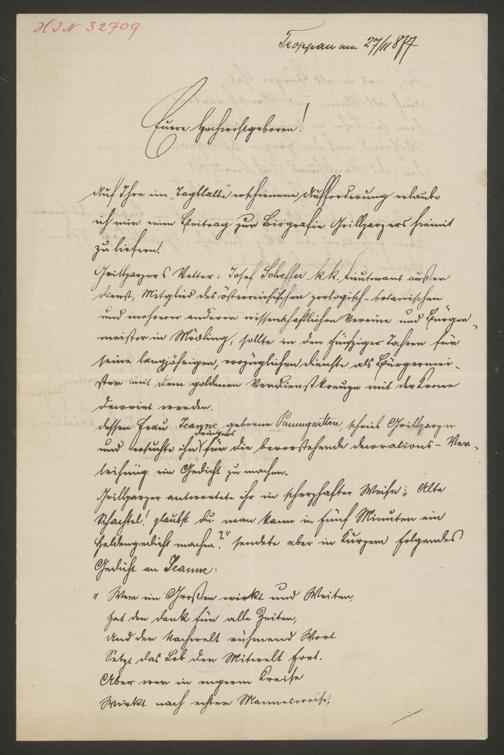 HIN 32709
Troppau am 27/11 877
Euere Hochwohlgeboren!
Auf Ihre im „Tagblatt" erschienene Aufforderung erlaube
ich mir einen Beitrag zur Biografie Grillparzers hiemit
zu liefern.
Grillparzers Vetter: Josef Scheffer k.k. Lieutenant außer
Dienst, Mitglied des österreichischen zoologisch-botanischen
und mehrerer anderer wissenschaftlichen Vereine und Bürger-
meister in Mödling, sollte in den fünfziger Jahren für
seine langjährigen, vorzüglichen Dienste als Bürgermei-
ster mit dem goldenen Verdienstkreuze mit der Krone
decorirt werden.
Dessen Frau Jeanne, geborne Paumgartten, schrieb Grillparzer
und ersuchte ihn dringend für die bevorstehende Decorations-Ver-
leihung ein Gedicht zu machen.
Grillparzer antwortete ihr in scherzhafter Weise: „Alte
Schachtel! glaubst du man kann in fünf Minuten ein
Heldengedicht machen?" sendete aber in Kurzem folgendes
Gedicht an Jeanne:
„Wer im Großen wirkt und Weiten,
Hat den Dank für alle Zeiten,
Und der Nachwelt rühmend Wort
Setzt das Lob der Mitwelt fort.
Aber wer in engerm Kreise
Wirkt nach echter Mannesweise,